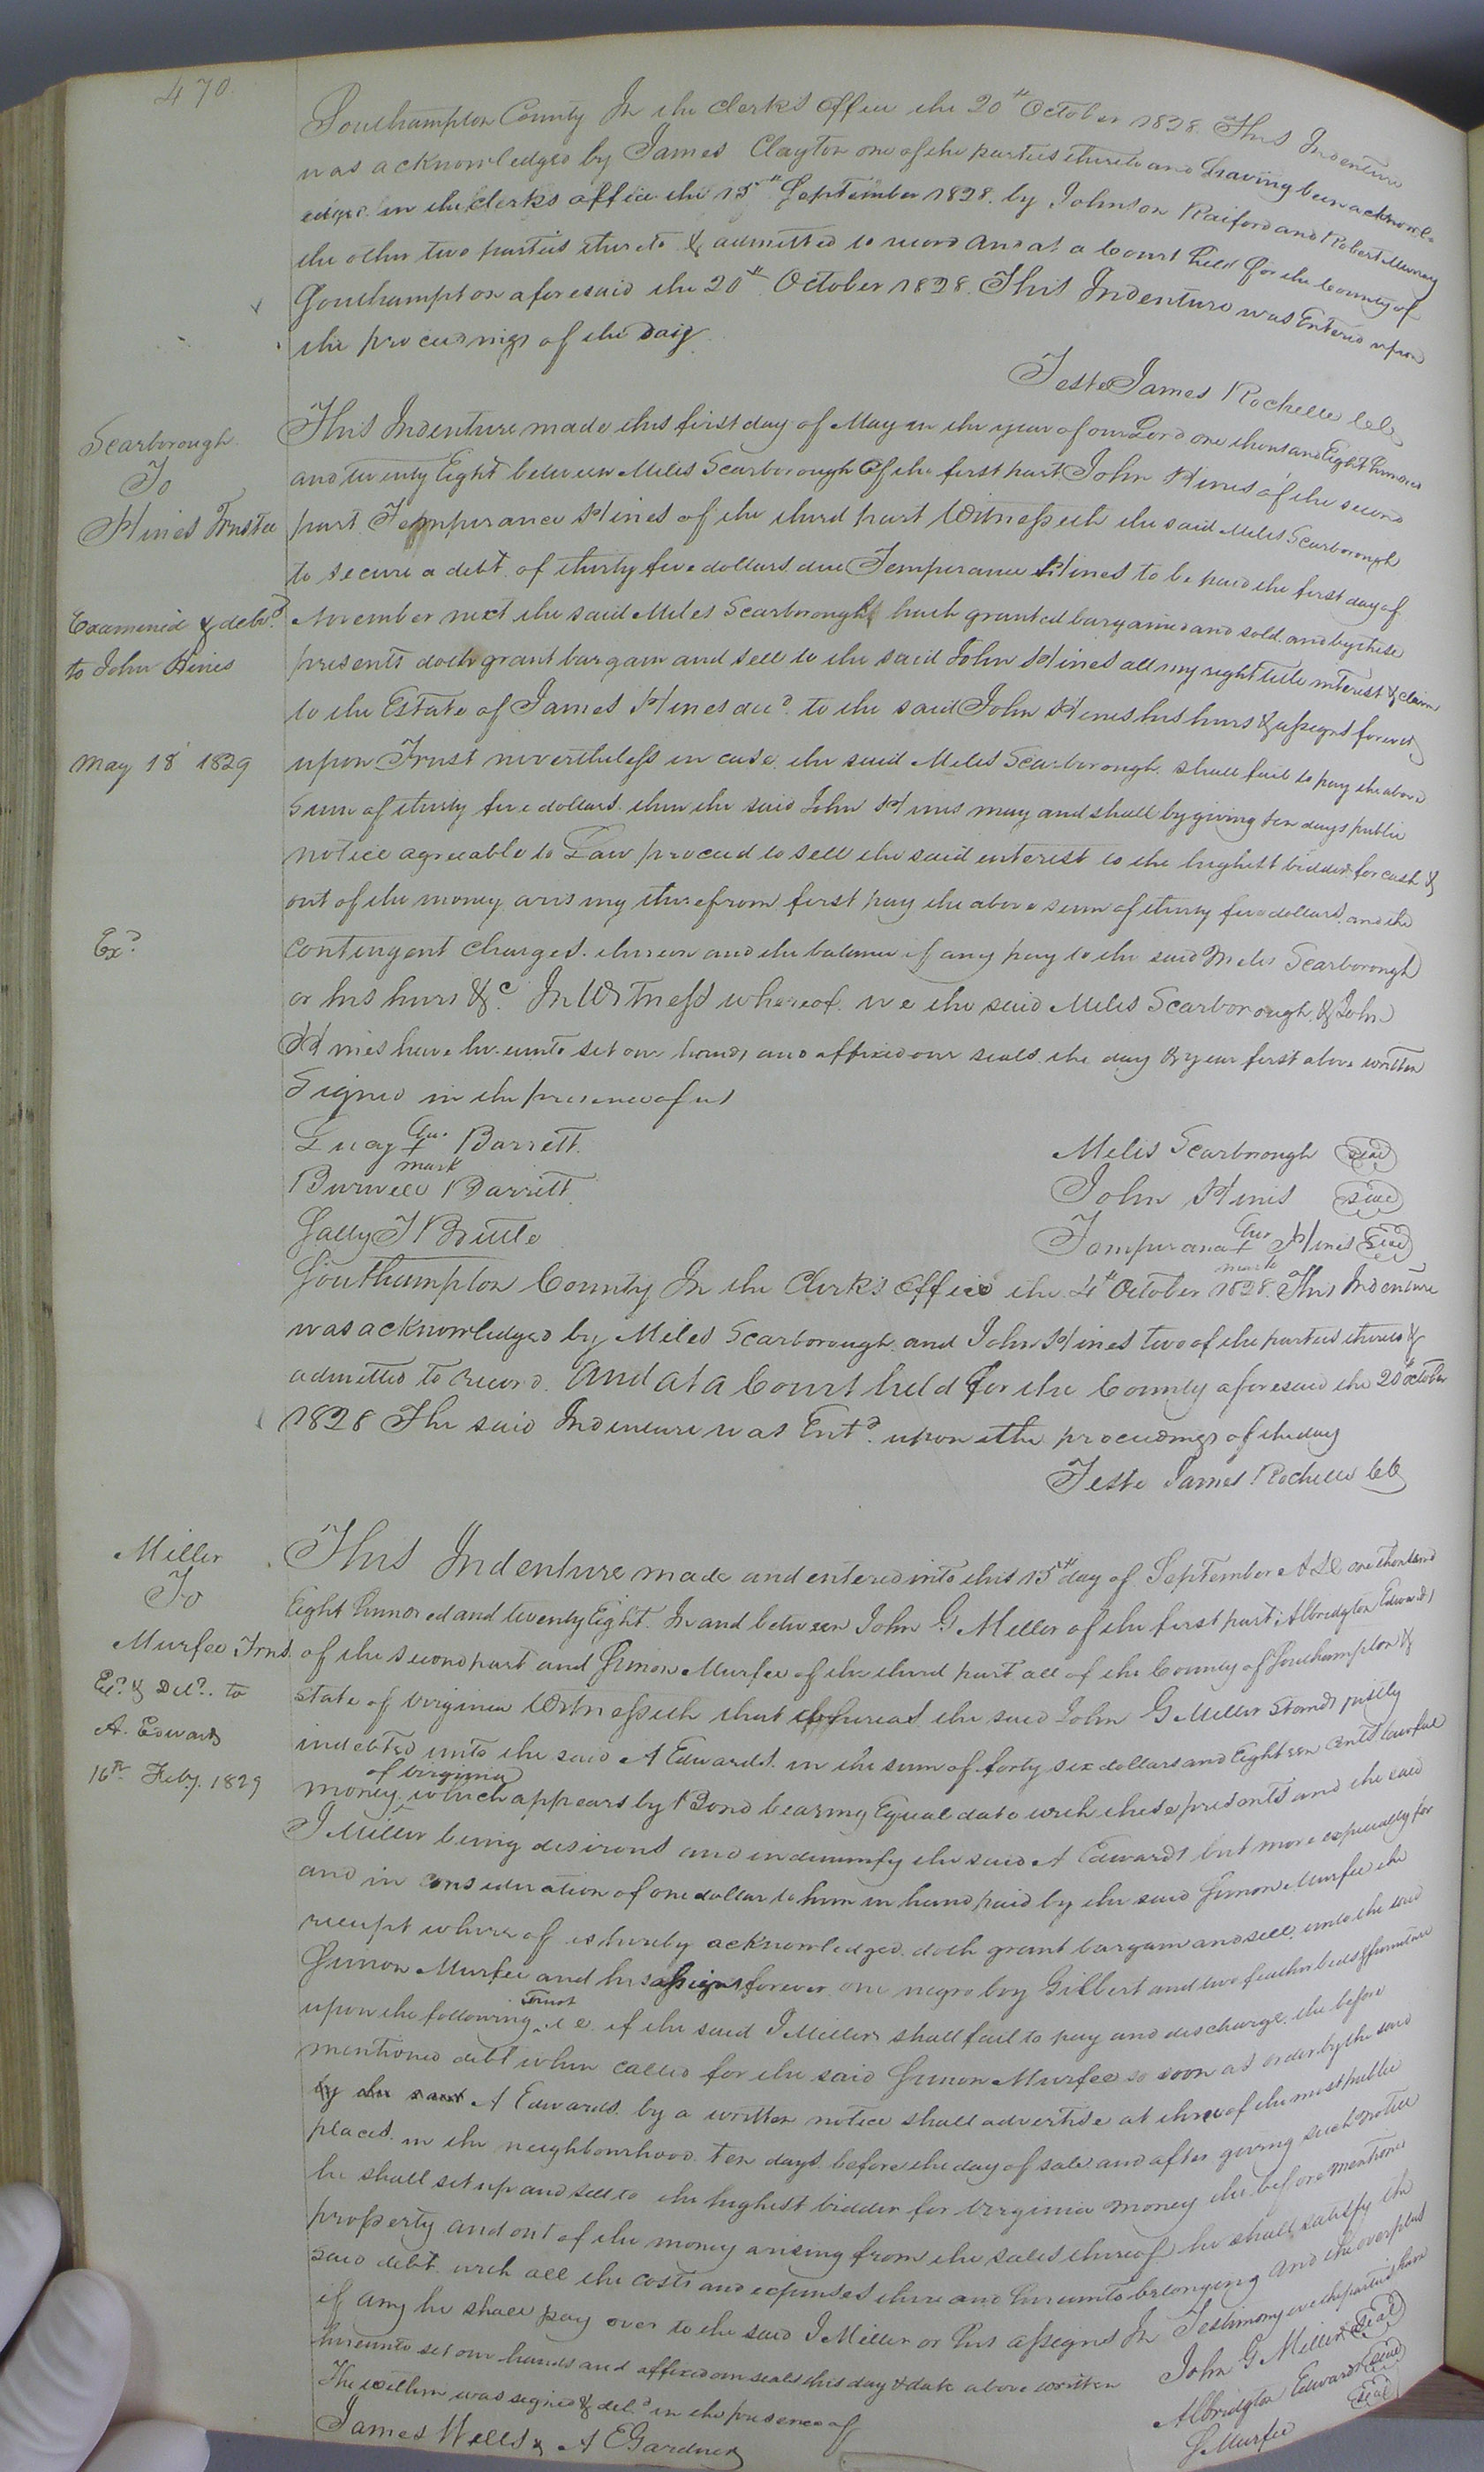 470.
Southampton County In the Clerk's Office the 20th October 1828. This Indenture
was acknowledged by James Clayton one of the parties thereto and having been acknowl-
edged in the Clerks office the 15th September 1828. by Johnson Raiford and Robert Murray
the other two parties thereto & admitted to record And at a Court held for the County of
Southampton aforesaid the 20th October 1828. This Indenture was Entered upon
the proceedings of the Day.
Teste James Rochelle CCl
Scarborough
To
Hines Trustee
Examined & deld.
to John Hines
May 18 1829
Exd.
This Indenture made this first day of May in the year of our Lord one thousand Eight hundred
and twenty Eight between Miles Scarborough Of the first part John Hines of the second
part Temperance Hines of the third part Witnesseth the said Miles Scarborough
to secure a debt of thirty five dollars due Temperance Hines to be paid the first day of
November next the said Miles Scarborough hath granted bargained and sold and by these
presents doth grant bargain and sell to the said John Hines all my right title interest & claim
to the Estate of James Hines decd. to the said John Hines his heirs & assigns forever
upon Trust nevertheless in case the said Miles Scarborough shall fail to pay the above
sum of thirty five dollars then the said John Hines may and shall by giving ten days public
notice agreeable to Law proceed to sell the said interest to the highest bidder for cash &
out of the money arising therefrom first pay the above sum of thirty five dollars and the
contingent charges thereon and the balance if any pay to the said Miles Scarborough
or his heirs &c. In Witness whereof we the said Miles Scarborough & John
Hines have hereunto set our hands and affixed our seals the day & year first above written
Signed in the presence of us
Lucy her + mark Barrett.
Burwell Barrett.
Sally T Brittle
Miles Scarborough seal
John Hines seal
Temperance her + mark Hines Seal
Southampton County In the Clerk's Office the 4th October 1828. This Indenture
was acknowledged by Miles Scarborough and John Hines two of the parties thereto &
admitted to record. And at a Court held for the County aforesaid the 20th October
1828 The said Indenture was Entd. upon the proceedings of the day
Teste James Rochelle CC
Miller
To
Murfee Trus.
Ed. & Deld. to
A. Edwards
16th Feby. 1829
This Indenture made and entered into this 15th day of September A D one thousand
Eight hundred and twenty Eight. In and between John G Miller of the first part, Albridgton Edwards
of the second part and Simon Murfee of the third part all of the County of Southampton &
state of Virginia Witnesseth that whereas the said John G Miller stands justly
indebted unto the said A Edwards. in the sum of forty six dollars and Eighteen cents lawful
money of Virginia which appears by Bond bearing Equal date with these presents and the said
J Miller being desirous and indemnify the said A Edwards but more especially for
and in consideration of one dollar to him in hand paid by the said Simon Murfee the
receipt whereof is hereby acknowledged doth grant bargain and sell unto the said
Simon Murfee and his assigns forever one negro boy Gilbert and two feather beds & furniture
upon the following Trust i.e. if the said J Miller shall fail to pay and discharge the before
mentioned debt when called for the said Simon Murfee so soon as order by the said
by the said A Edwards. by a written notice shall advertise at three of the most public
places in the neighbourhood ten days before the day of sale and after giving such notice
he shall set up and sell to the highest bidder for Virginia money the before mentioned
property and out of the money arising from the sales thereof he shall satisfy the
said debt with all the costs and expenses there and hereunto belonging and the overplus
if any he shall pay over to the said J Miller or his assigns In Testimony we the parties have
hereunto set our hands and affixed our seals this day & date above written
The within was signed & deld. in the presence of
James Wells & A E Gardner
John G Miller Seal
Albridgton Edwards seal
S Murfee Seal